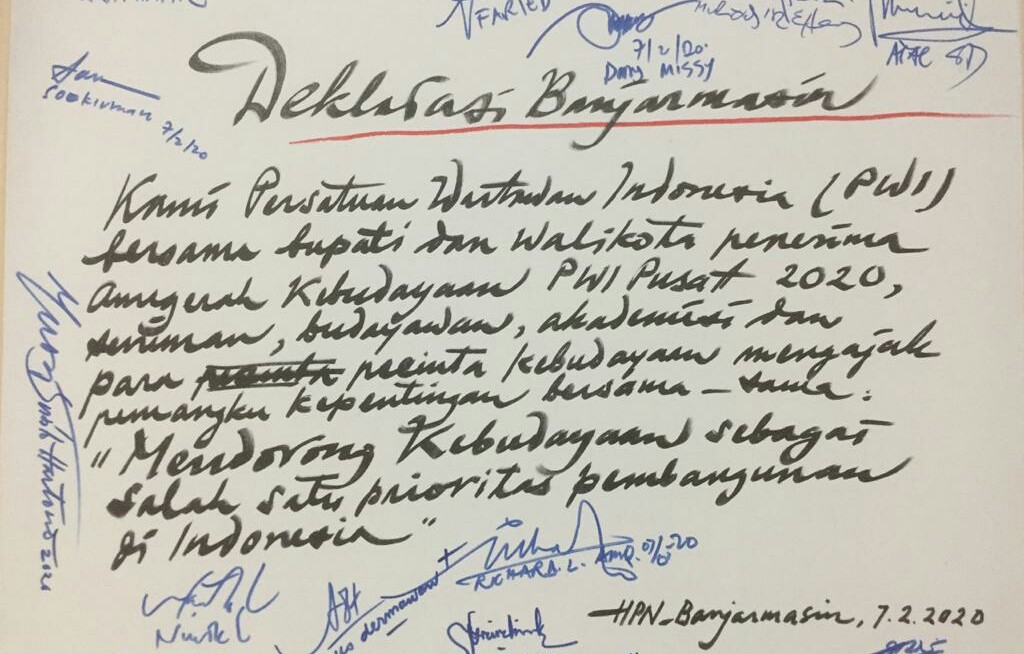 FARIED
7/2/20.
Dany MISSY
Soekirman 7/2/20
Deklarasi Banjarmasin
Kami Persatuan Wartawan Indonesia (PWI)
bersama bupati dan Walikota penerima
Anugerah Kebudayaan PWI Pusat 2020,
seniman, budayawan, akademisi dan
para pecinta kebudayaan mengajak
pemangku kepentingan bersama-sama:
"Mendorong Kebudayaan sebagai
salah satu prioritas pembangunan
di Indonesia"
RICHARD. L.
dermawan
HPN-Banjarmasin, 7.2.2020